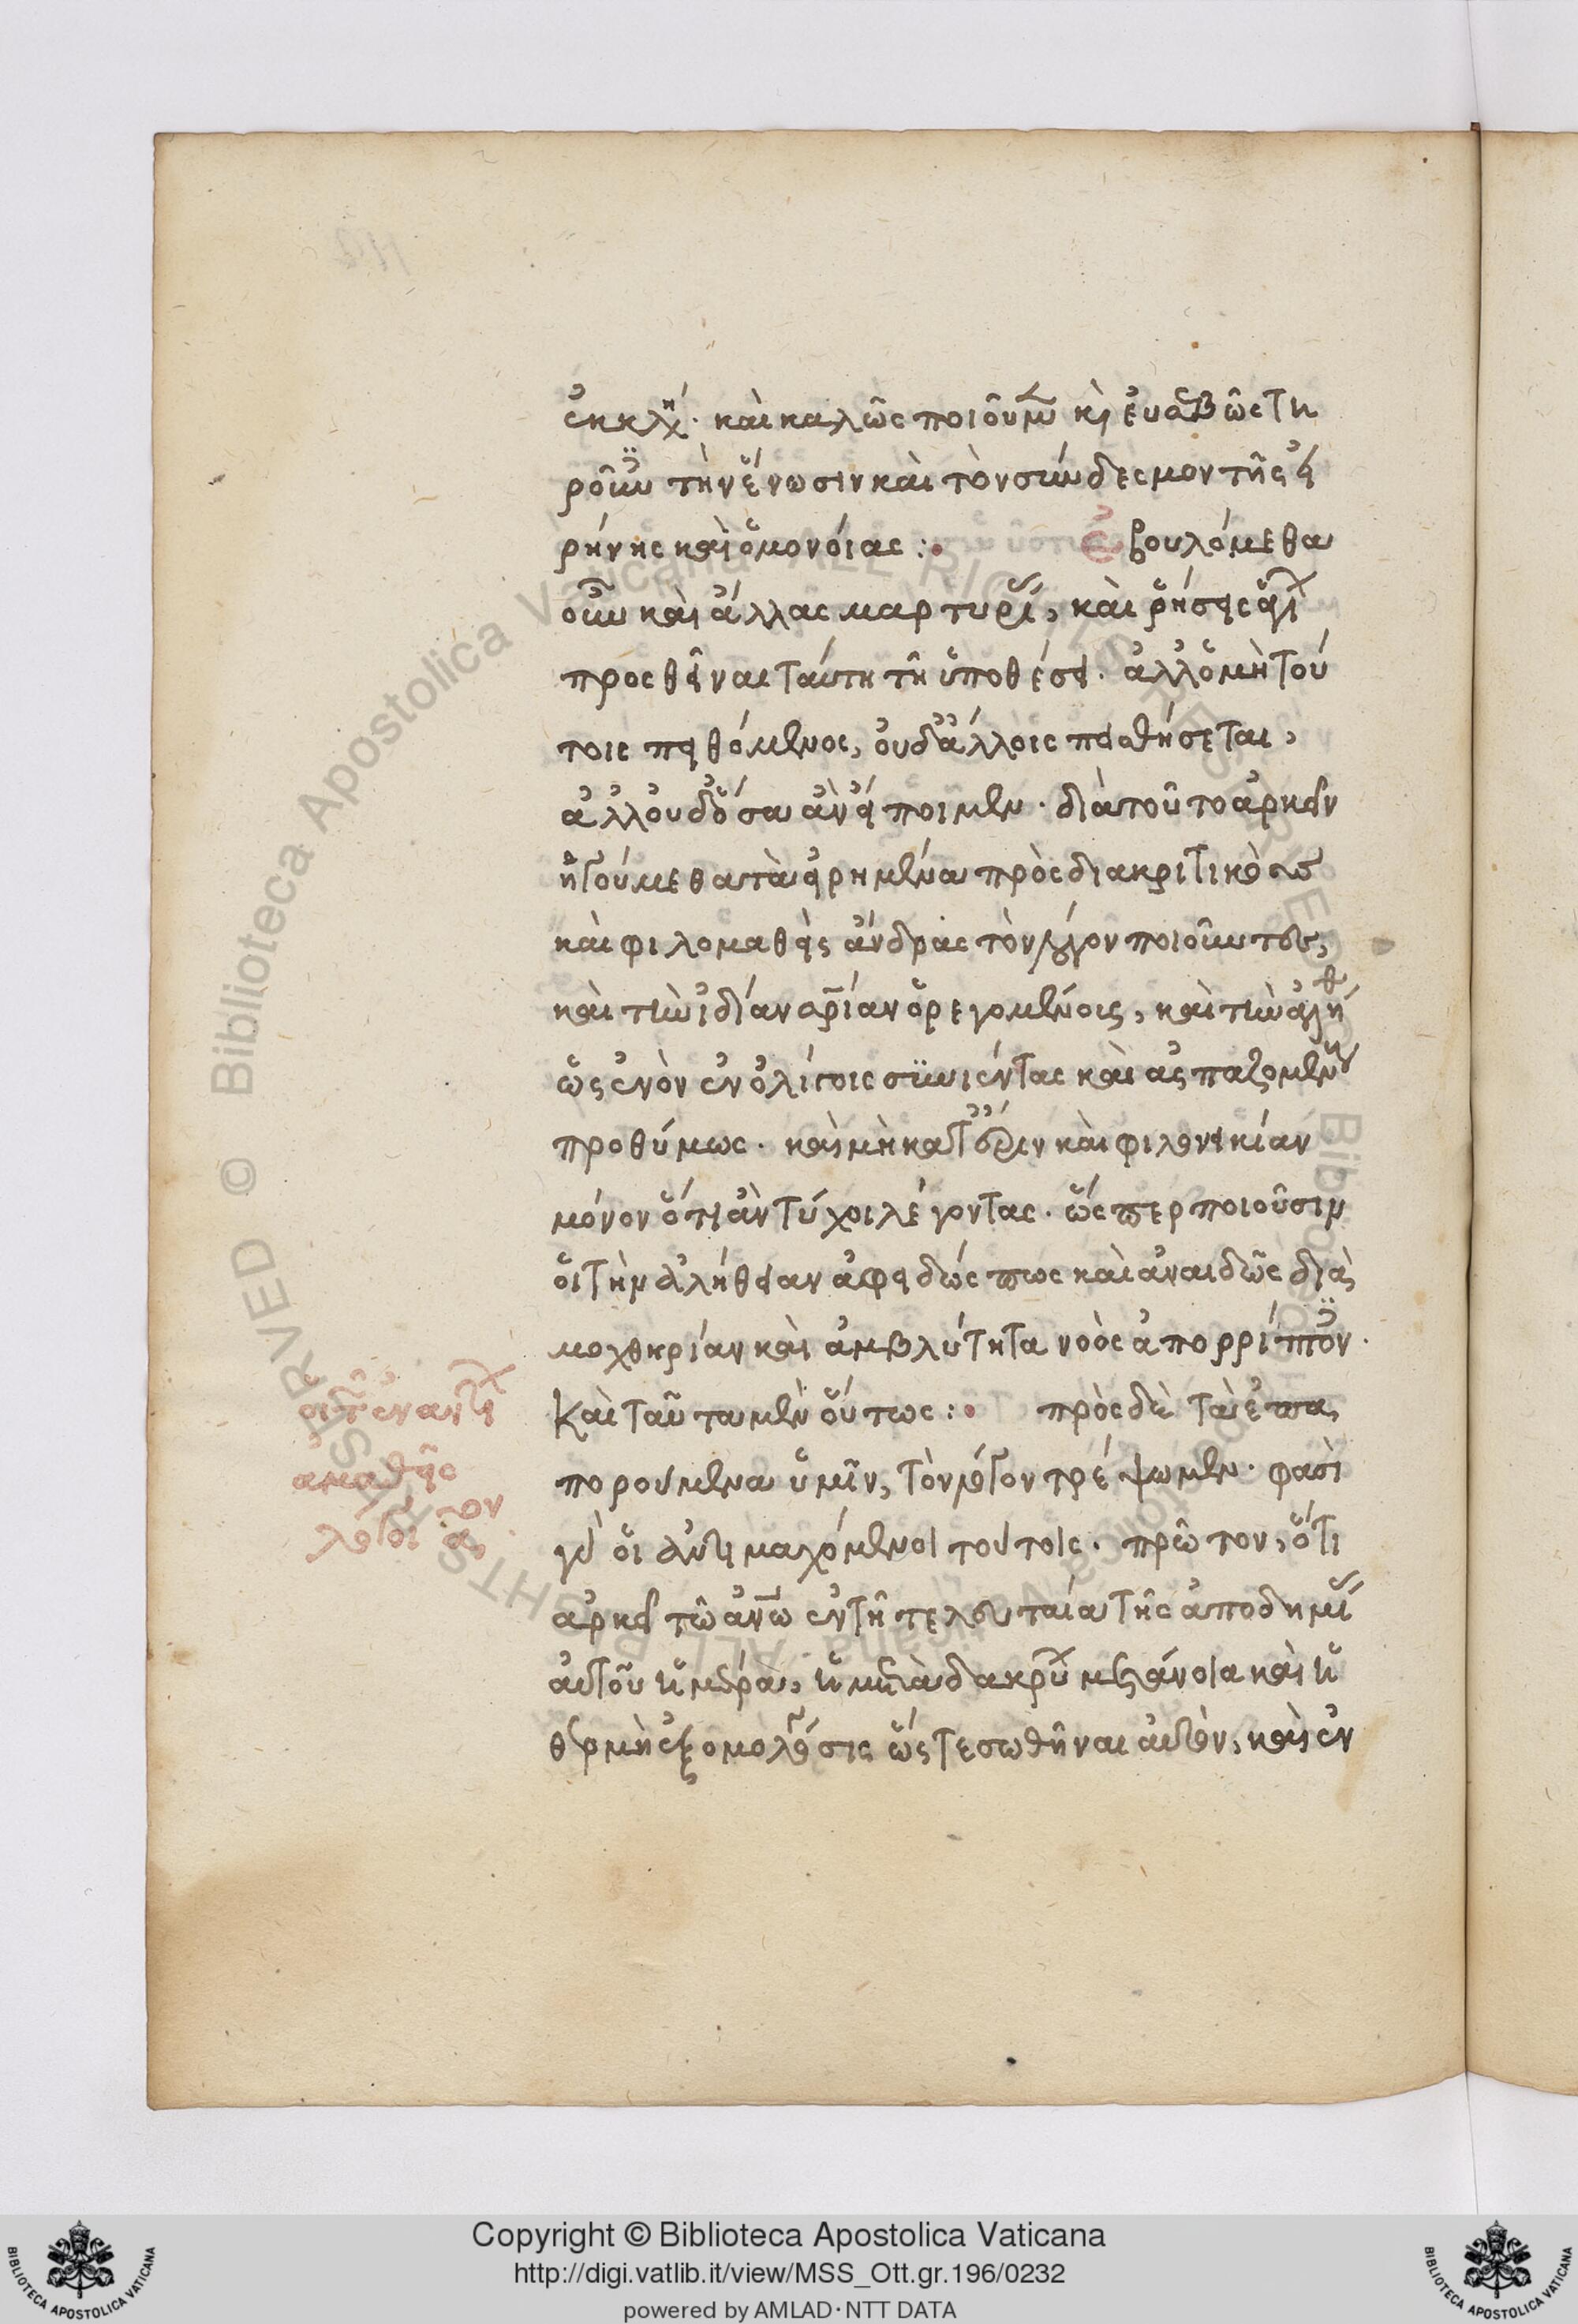 ἐκκλη. καὶ καλῶς ποιοῦμεν καὶ εὐσεβῶς τη
ροῦμεν τὴν ἕνωσιν καὶ τὸν σύνδεσμον τῆς εἰ
ρήνης καὶ ὁμονοίας :· ἐβουλόμεθα
οὖν καὶ ἄλλας μαρτυρίας, καὶ ῥήσεις
προσθεῖναι ταύτη τῆ ὑποθέσει. ἀλλ' ὁ μὴ τού
τοις πειθόμενος, οὐδ' ἄλλοις πεισθήσεται,
ἀλλ' οὐδ' ὅσα ἂν εἴποιμεν. διὰ τοῦτο ἀρκεῖν
ἡγούμεθα τὰ εἰρημένα πρὸς διακριτικοὺς
καὶ φιλομαθεῖς ἄνδρας τὸν λόγον ποιοῦντες,
καὶ τὴν ἰδίαν σωτηρίαν ὀρεγομένοις, καὶ τὴν ἀλήθ
ὡς ἐνὸν ἐν ὀλίγοις συνιέντας καὶ ἀσπαζομένους
προθύμως. καὶ μὴ κατ' ἔριν καὶ φιλονεικίαν
μόνον ὅτι ἂν τύχοι λέγοντας. ὥσπερ ποιοῦσιν
οἱ τὴν ἀλήθειαν ἀφειδώς πως καὶ ἀναιδῶς διὰ
μοχθηρίαν καὶ ἀμβλύτητα νοὸς ἀπορρίπτον.
Καὶ ταῦτα μὲν οὕτως :· πρὸς δὲ τὰ ἐπα
πορούμενα ὑμῖν, τὸν λόγον τρέψωμεν. φασὶ
γὰρ οἱ ἀντιμαχόμενοι τούτοις. πρῶτον, ὅτι
ἀρκεῖ τῶ ἀνω ἐν τῆ τελευταία τῆς ἀποδημί
αὐτοῦ ἡμέρα, ἡ μετὰ δακρύ μετάνοια καὶ ἡ
θερμὴ ἐξομολόγησις ὥστε σωθῆναι αὐτὸν, καὶ ἐν
οἱ τῶν ἐναντί
ἀμαθεῖς
λόγοι